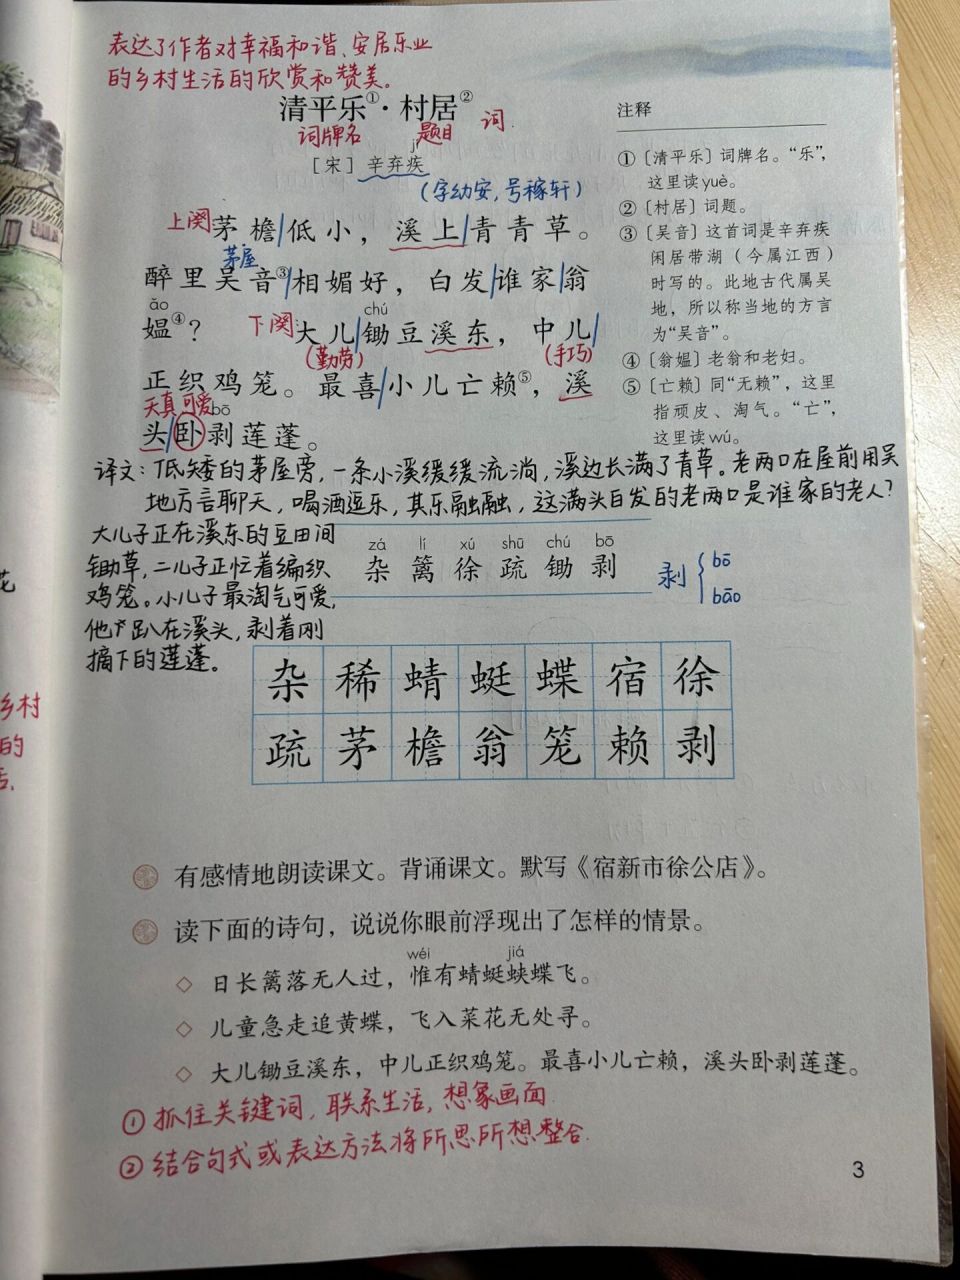 表达了作者对幸福和谐、安居乐业
的乡村生活的欣赏和赞美。
清平乐①·村居②
词牌名 题目 词
jí
[宋]辛弃疾
(字幼安,号稼轩)
上阕 茅檐低小，溪上青青草。
茅屋
醉里吴音③相媚好，白发谁家翁
ǎo
媪④？
chú
下阕 大儿锄豆溪东，中儿
(勤劳) (手巧)
正织鸡笼。最喜小儿亡赖⑤，溪
天真可爱 bō
头卧剥莲蓬。
注释
①〔清平乐〕词牌名。“乐”，
这里读yuè。
②〔村居〕词题。
③〔吴音〕这首词是辛弃疾
闲居带湖（今属江西）
时写的。此地古代属吴
地，所以称当地的方言
为“吴音”。
④〔翁媪〕老翁和老妇。
⑤〔亡赖〕同“无赖”，这里
指顽皮、淘气。“亡”，
这里读wú。
译文：低矮的茅屋旁，一条小溪缓缓流淌，溪边长满了青草。老两口在屋前用吴
地方言聊天，喝酒逗乐，其乐融融，这满头白发的老两口是谁家的老人？
大儿子正在溪东的豆田间
锄草，二儿子正忙着编织
鸡笼。小儿子最淘气可爱，
他趴在溪头，剥着刚
摘下的莲蓬。
zá lí xú shū chú bō
杂 篱 徐 疏 锄 剥
剥 bō
bāo
杂 稀 蜻 蜓 蝶 宿 徐
疏 茅 檐 翁 笼 赖 剥
有感情地朗读课文。背诵课文。默写《宿新市徐公店》。
读下面的诗句，说说你眼前浮现出了怎样的情景。
wéi jiá
◇ 日长篱落无人过，惟有蜻蜓蛱蝶飞。
◇ 儿童急走追黄蝶，飞入菜花无处寻。
◇ 大儿锄豆溪东，中儿正织鸡笼。最喜小儿亡赖，溪头卧剥莲蓬。
① 抓住关键词，联系生活，想象画面
② 结合句式或表达方法将所思所想整合.
3
花
乡村
的